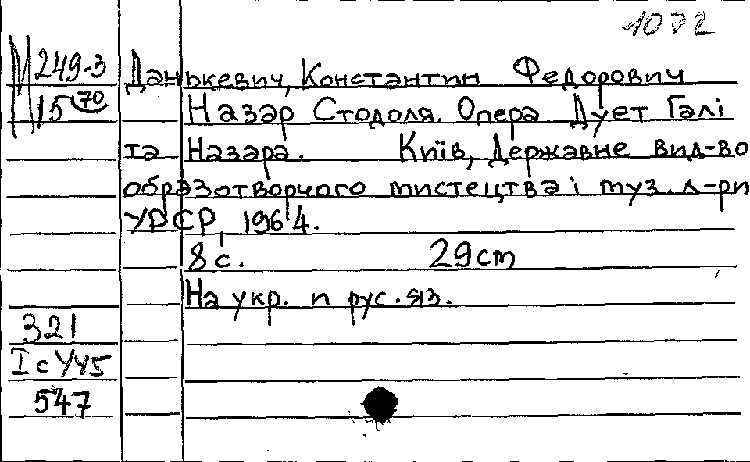 1072
М 249-3 Данькевич, Константин Федорович
15 70 Назар Стодоля. Опера. Дует Галі
та Назара. Київ, Державне вид-во
образотворчого мистецтва і муз. л-ри
УРСР, 1964.
8 с. 29 cm
На укр. и рус. яз.
321
I c УУ5
547